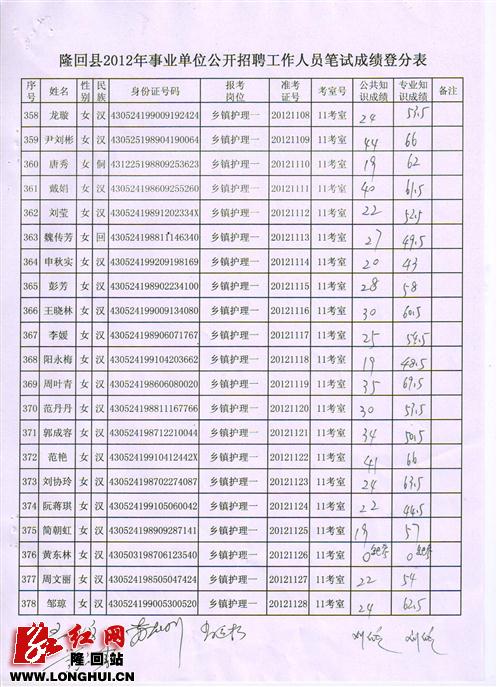 隆回县2012年事业单位公开招聘工作人员笔试成绩登分表
序号 姓名 性别 民族 身份证号码 报考岗位 准考证号 考室号 公共知识成绩 专业知识成绩 备注
358 龙璇 女 汉 430524199009192424 乡镇护理一 20121108 11考室 24 53.5
359 尹刘彬 女 汉 430525198904190064 乡镇护理一 20121109 11考室 44 66
360 唐秀 女 侗 431225198809253623 乡镇护理一 20121110 11考室 19 62
361 戴娟 女 汉 430524198609255260 乡镇护理一 20121111 11考室 40 61.5
362 刘莹 女 汉 43052419891202334X 乡镇护理一 20121112 11考室 22 52.5
363 魏传芳 女 回 430524198811146340 乡镇护理一 20121113 11考室 27 49.5
364 申秋实 女 汉 430524199209198169 乡镇护理一 20121114 11考室 20 43
365 彭芳 女 汉 430524198902234100 乡镇护理一 20121115 11考室 28 58
366 王晓林 女 汉 430524199009134080 乡镇护理一 20121116 11考室 30 60.5
367 李媛 女 汉 430524198906071767 乡镇护理一 20121117 11考室 25 54.5
368 阳永梅 女 汉 430524199104203662 乡镇护理一 20121118 11考室 19 48.5
369 周叶青 女 汉 430524198606080020 乡镇护理一 20121119 11考室 35 67.5
370 范丹丹 女 汉 430524198811167766 乡镇护理一 20121120 11考室 30 53.5
371 郭成容 女 汉 430524198712210044 乡镇护理一 20121121 11考室 34 50.5
372 范艳 女 汉 43052419910412442X 乡镇护理一 20121122 11考室 41 66
373 刘协玲 女 汉 430524198702274087 乡镇护理一 20121123 11考室 24 63.5
374 阮蒋琪 女 汉 430524199105060042 乡镇护理一 20121124 11考室 22 44.5
375 简朝虹 女 汉 430524198909287141 乡镇护理一 20121125 11考室 19 57
376 黄东林 女 汉 430503198706123540 乡镇护理一 20121126 11考室 0缺考 0缺考
377 周文丽 女 汉 430524198505047424 乡镇护理一 20121127 11考室 22 54
378 邹琼 女 汉 430524199005300520 乡镇护理一 20121128 11考室 24 62.5
红网
隆回站
WWW.LONGHUI.CN